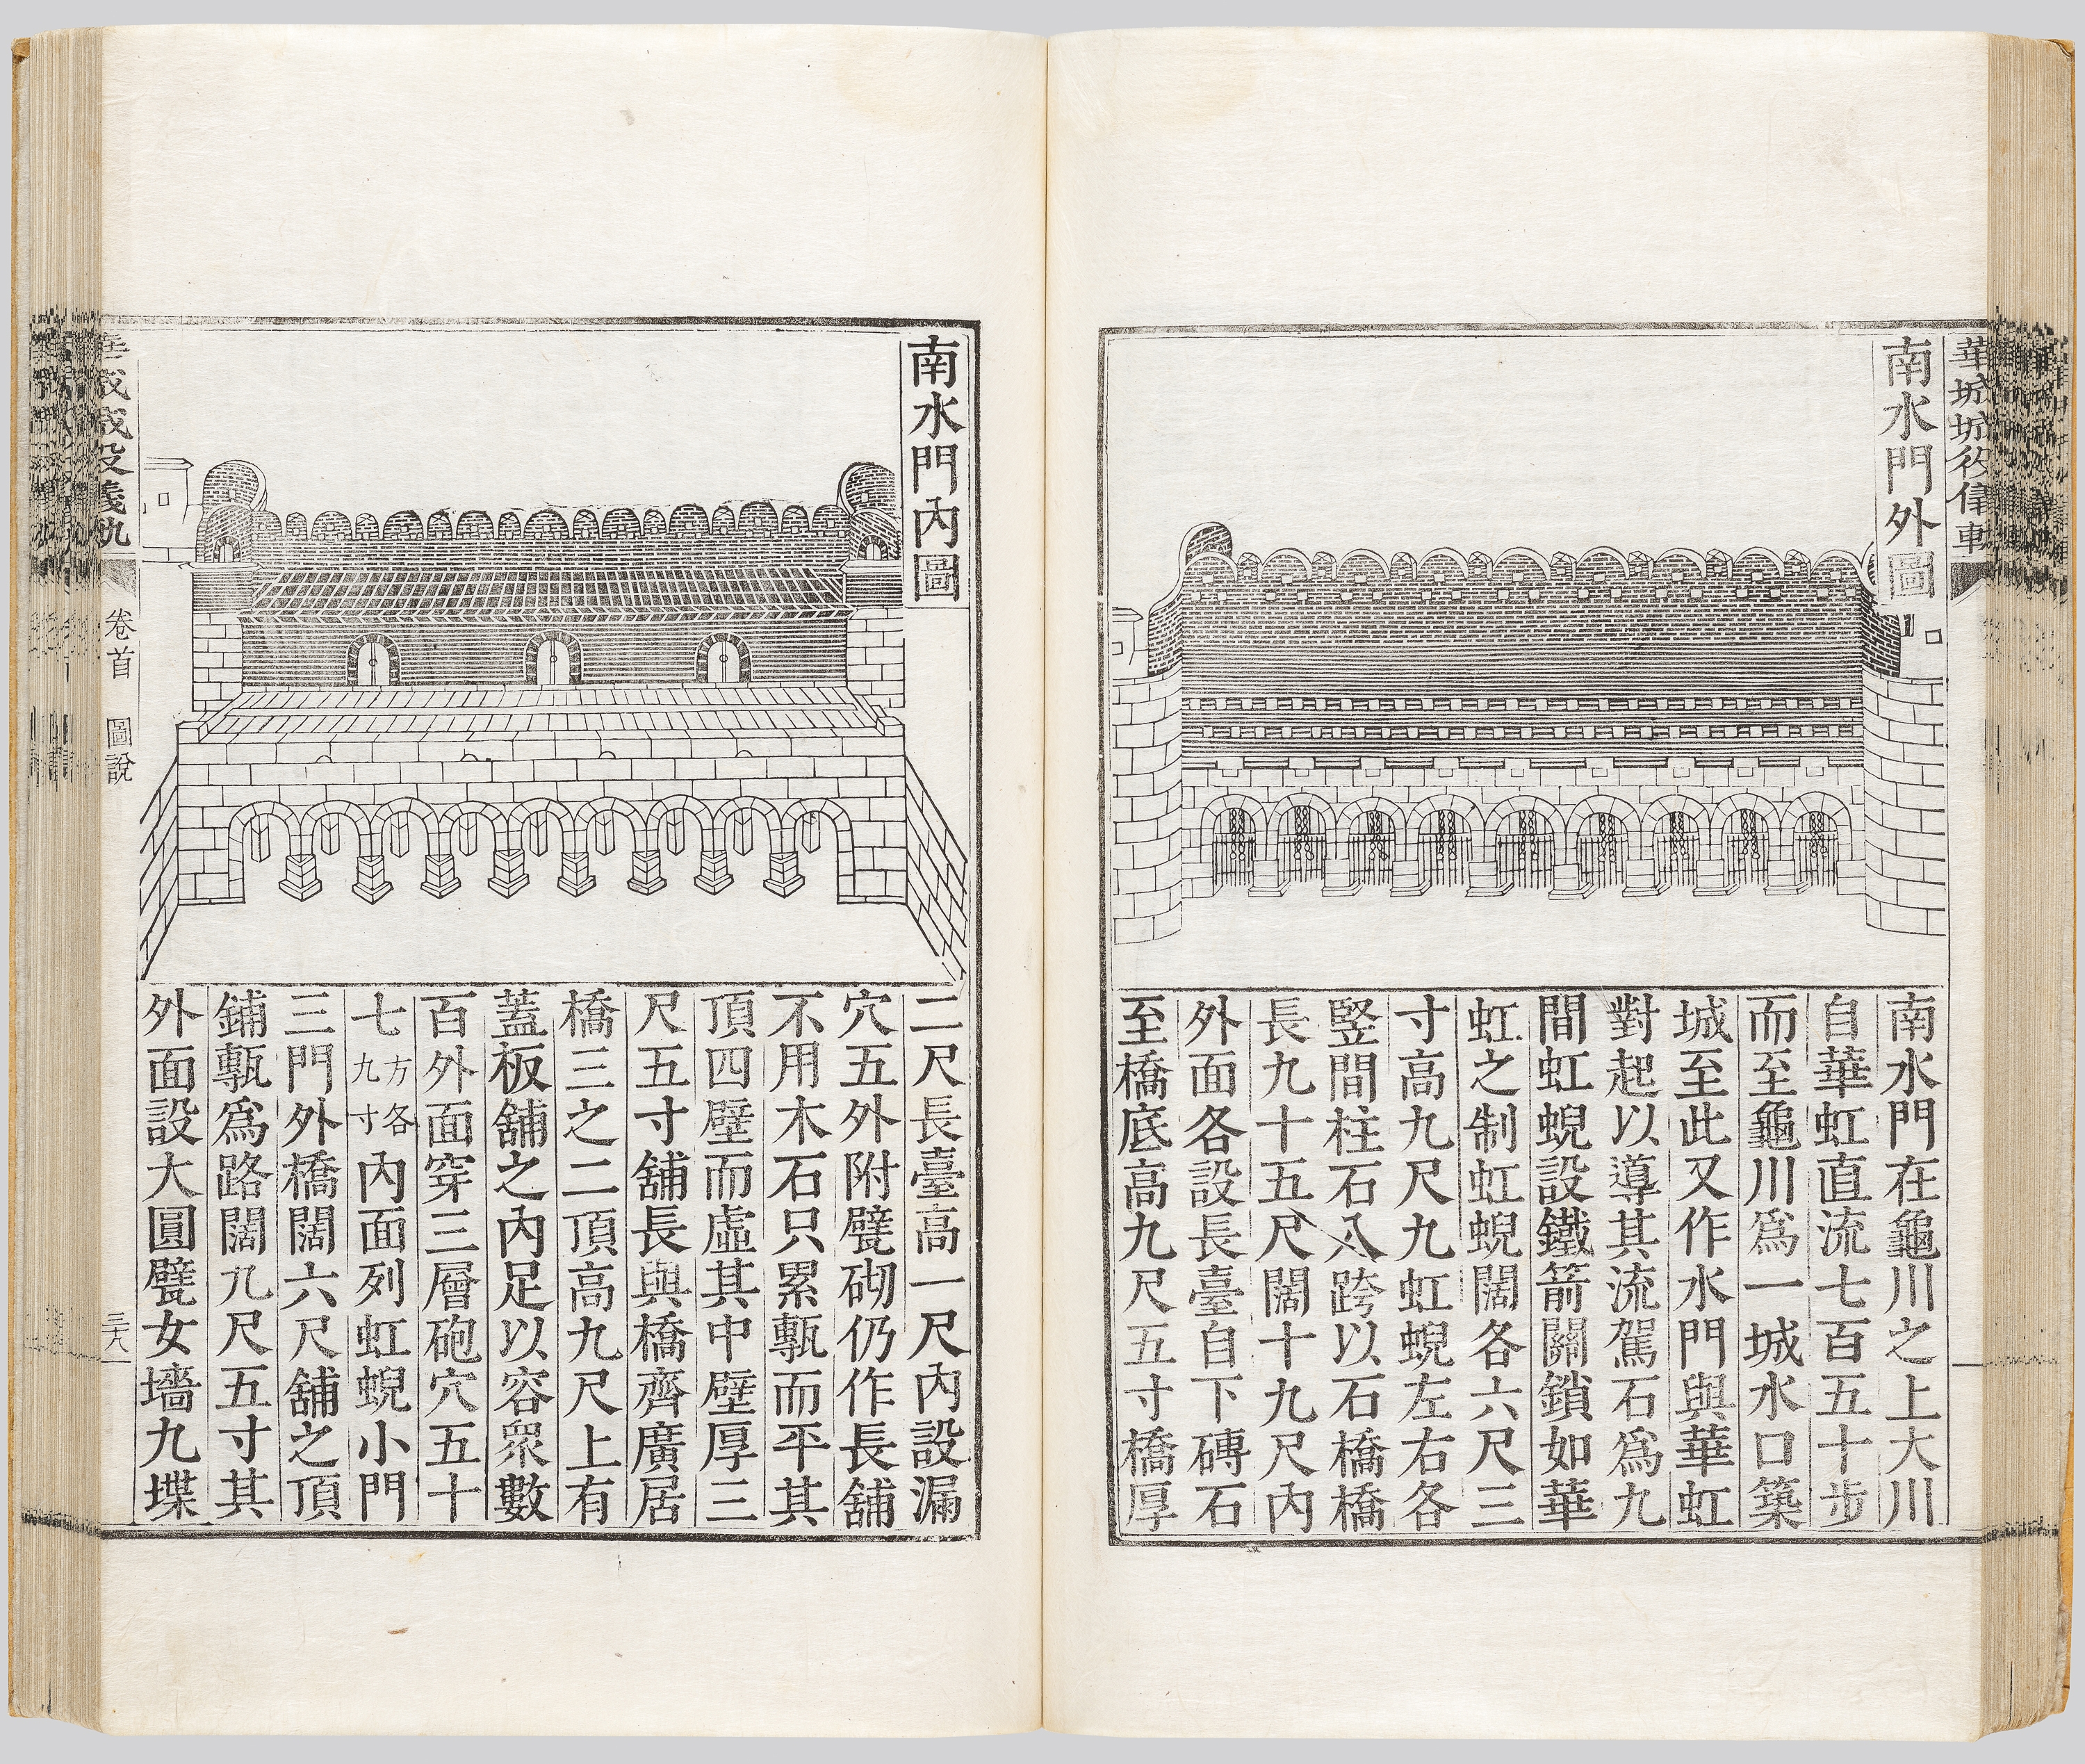 華城城役儀軌
南水門外圖
南水門在龜川之上大川
自華虹直流七百五十步
而至龜川爲一城水口築
城至此又作水門與華虹
對起以導其流駕石爲九
間虹蜺設鐵箭關鎖如華
虹之制虹蜺闊各六尺三
寸高九尺九虹蜺左右各
竪間柱石八跨以石橋橋
長九十五尺闊十九尺內
外面各設長臺自下磚石
至橋底高九尺五寸橋厚
南水門內圖
二尺長臺高一尺內設漏
穴五外附甓砌仍作長舖
不用木石只累甎而平其
頂四壁而虛其中壁厚三
尺五寸舖長與橋齊廣居
橋三之二頂高九尺上有
蓋板舖之內足以容眾數
百外面穿三層砲穴五十
七方各九寸內面列虹蜺小門
三門外橋闊六尺舖之頂
鋪甎爲路闊九尺五寸其
外面設大圓甓女墻九堞
華城城役儀軌 卷首 圖說 三八